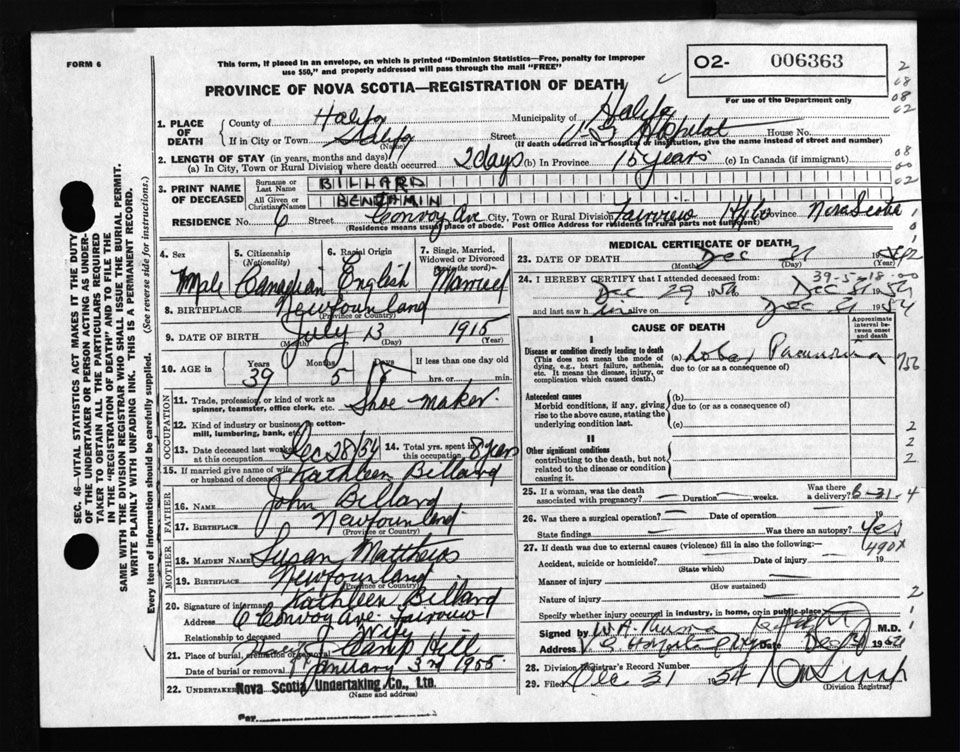 FORM 6
This form, if placed in an envelope, on which is printed "Dominion Statistics—Free, penalty for improper
use $50," and properly addressed will pass through the mail "FREE"
02- 006363
For use of the Department only
PROVINCE OF NOVA SCOTIA—REGISTRATION OF DEATH
1. PLACE OF DEATH
County of Halifax Municipality of Halifax
If in City or Town Halifax Street Hospital House No.
(Name) (If death occurred in a hospital or institution, give the name instead of street and number)
2. LENGTH OF STAY (in years, months and days)
(a) In City, Town or Rural Division where death occurred 2 days (b) In Province 15 years (c) In Canada (if immigrant)
3. PRINT NAME OF DECEASED
Surname or Last Name BILLARD
All Given or Christian Names BENJAMIN
RESIDENCE No. 6 Street Convoy Ave City, Town or Rural Division Fairview Hfx Co Province Nova Scotia
(Residence means usual place of abode. Post Office Address for residents in rural parts not sufficient)
4. Sex Male
5. Citizenship (Nationality) Canadian
6. Racial Origin English
7. Single, Married, Widowed or Divorced (write the word) Married
8. BIRTHPLACE Newfounland
(Province or Country)
9. DATE OF BIRTH July 13 1915
(Month) (Day) (Year)
10. AGE in Years 39 Months 5 Days 18 If less than one day old
hrs. or min.
OCCUPATION
11. Trade, profession or kind of work as Shoe maker.
spinner, teamster, office clerk, etc.
12. Kind of industry or business as cotton-
mill, lumbering, bank, etc.
13. Date deceased last worked at this occupation Dec 28/54
14. Total yrs. spent in this occupation 8 years
15. If married give name of wife or husband of deceased Kathleen Billard
FATHER
16. Name John Billard
17. Birthplace Newfounland
(Province or Country)
MOTHER
18. Maiden Name Susan Matthews
19. Birthplace Newfounland
(Province or Country)
20. Signature of informant Kathleen Billard
Address 6 Convoy Ave Fairview
Relationship to deceased Wife
21. Place of burial, cremation or removal Camp Hill
Date of burial or removal January 3rd 1955.
22. Undertaker Nova Scotia Undertaking Co., Ltd.
(Name and address)
MEDICAL CERTIFICATE OF DEATH
23. DATE OF DEATH Dec 31
(Month) (Day) (Year)
39-5-18
24. I HEREBY CERTIFY that I attended deceased from:
Dec 29 1954 Dec 31 1954
and last saw h im alive on Dec 31 1954
CAUSE OF DEATH
Approximate interval between onset and death
I
Disease or condition directly leading to death (a) Lobar Pneumonia
(This does not mean the mode of dying, e.g., heart failure, asthenia, etc. It means the disease, injury, or complication which caused death.)
due to (or as a consequence of)
Antecedent causes (b)
Morbid conditions, if any, giving rise to the above cause, stating the underlying condition last.
due to (or as a consequence of)
(c)
II
Other significant conditions
contributing to the death, but not related to the disease or condition causing it.
25. If a woman, was the death associated with pregnancy? — Duration weeks. Was there a delivery?
26. Was there a surgical operation? — Date of operation 19
State findings — Was there an autopsy? Yes
490X
27. If death was due to external causes (violence) fill in also the following:—
Accident, suicide or homicide? Date of injury 19
(State which)
Manner of injury
(How sustained)
Nature of injury
Specify whether injury occurred in industry, in home, or in public place
Signed by M.D.
Address V. G. Hospital Date Dec 31 19
28. Division Registrar's Record Number
29. Filed Dec 31 1954
(Division Registrar)
SEC. 46—VITAL STATISTICS ACT MAKES IT THE DUTY
OF THE UNDERTAKER OR PERSON ACTING AS UNDER-
TAKER TO OBTAIN ALL THE PARTICULARS REQUIRED
IN THE "REGISTRATION OF DEATH" AND TO FILE THE
SAME WITH THE DIVISION REGISTRAR WHO SHALL ISSUE THE BURIAL PERMIT.
WRITE PLAINLY WITH UNFADING INK. THIS IS A PERMANENT RECORD.
Every item of information should be carefully supplied. (See reverse side for instructions.)